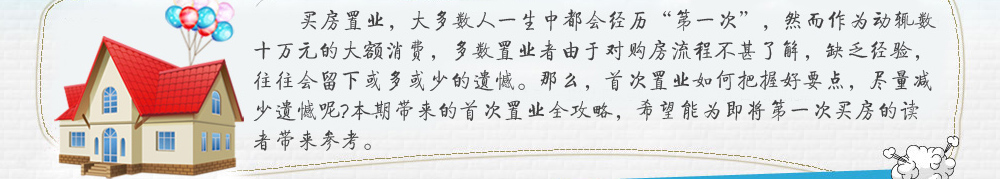 买房置业，大多数人一生中都会经历“第一次”，然而作为动辄数
十万元的大额消费，多数置业者由于对购房流程不甚了解，缺乏经验，
往往会留下或多或少的遗憾。那么，首次置业如何把握好要点，尽量减
少遗憾呢?本期带来的首次置业全攻略，希望能为即将第一次买房的读
者带来参考。